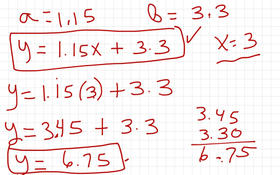 a = 1.15 b = 3.3
y = 1.15x + 3.3 ✓ x = 3
y = 1.15(3) + 3.3
y = 3.45 + 3.3
y = 6.75
3.45
3.30
6.75